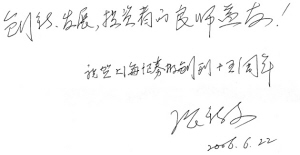 创新、发展,投资者的良师益友!
祝贺上海证券报创刊十五周年
2006.6.22